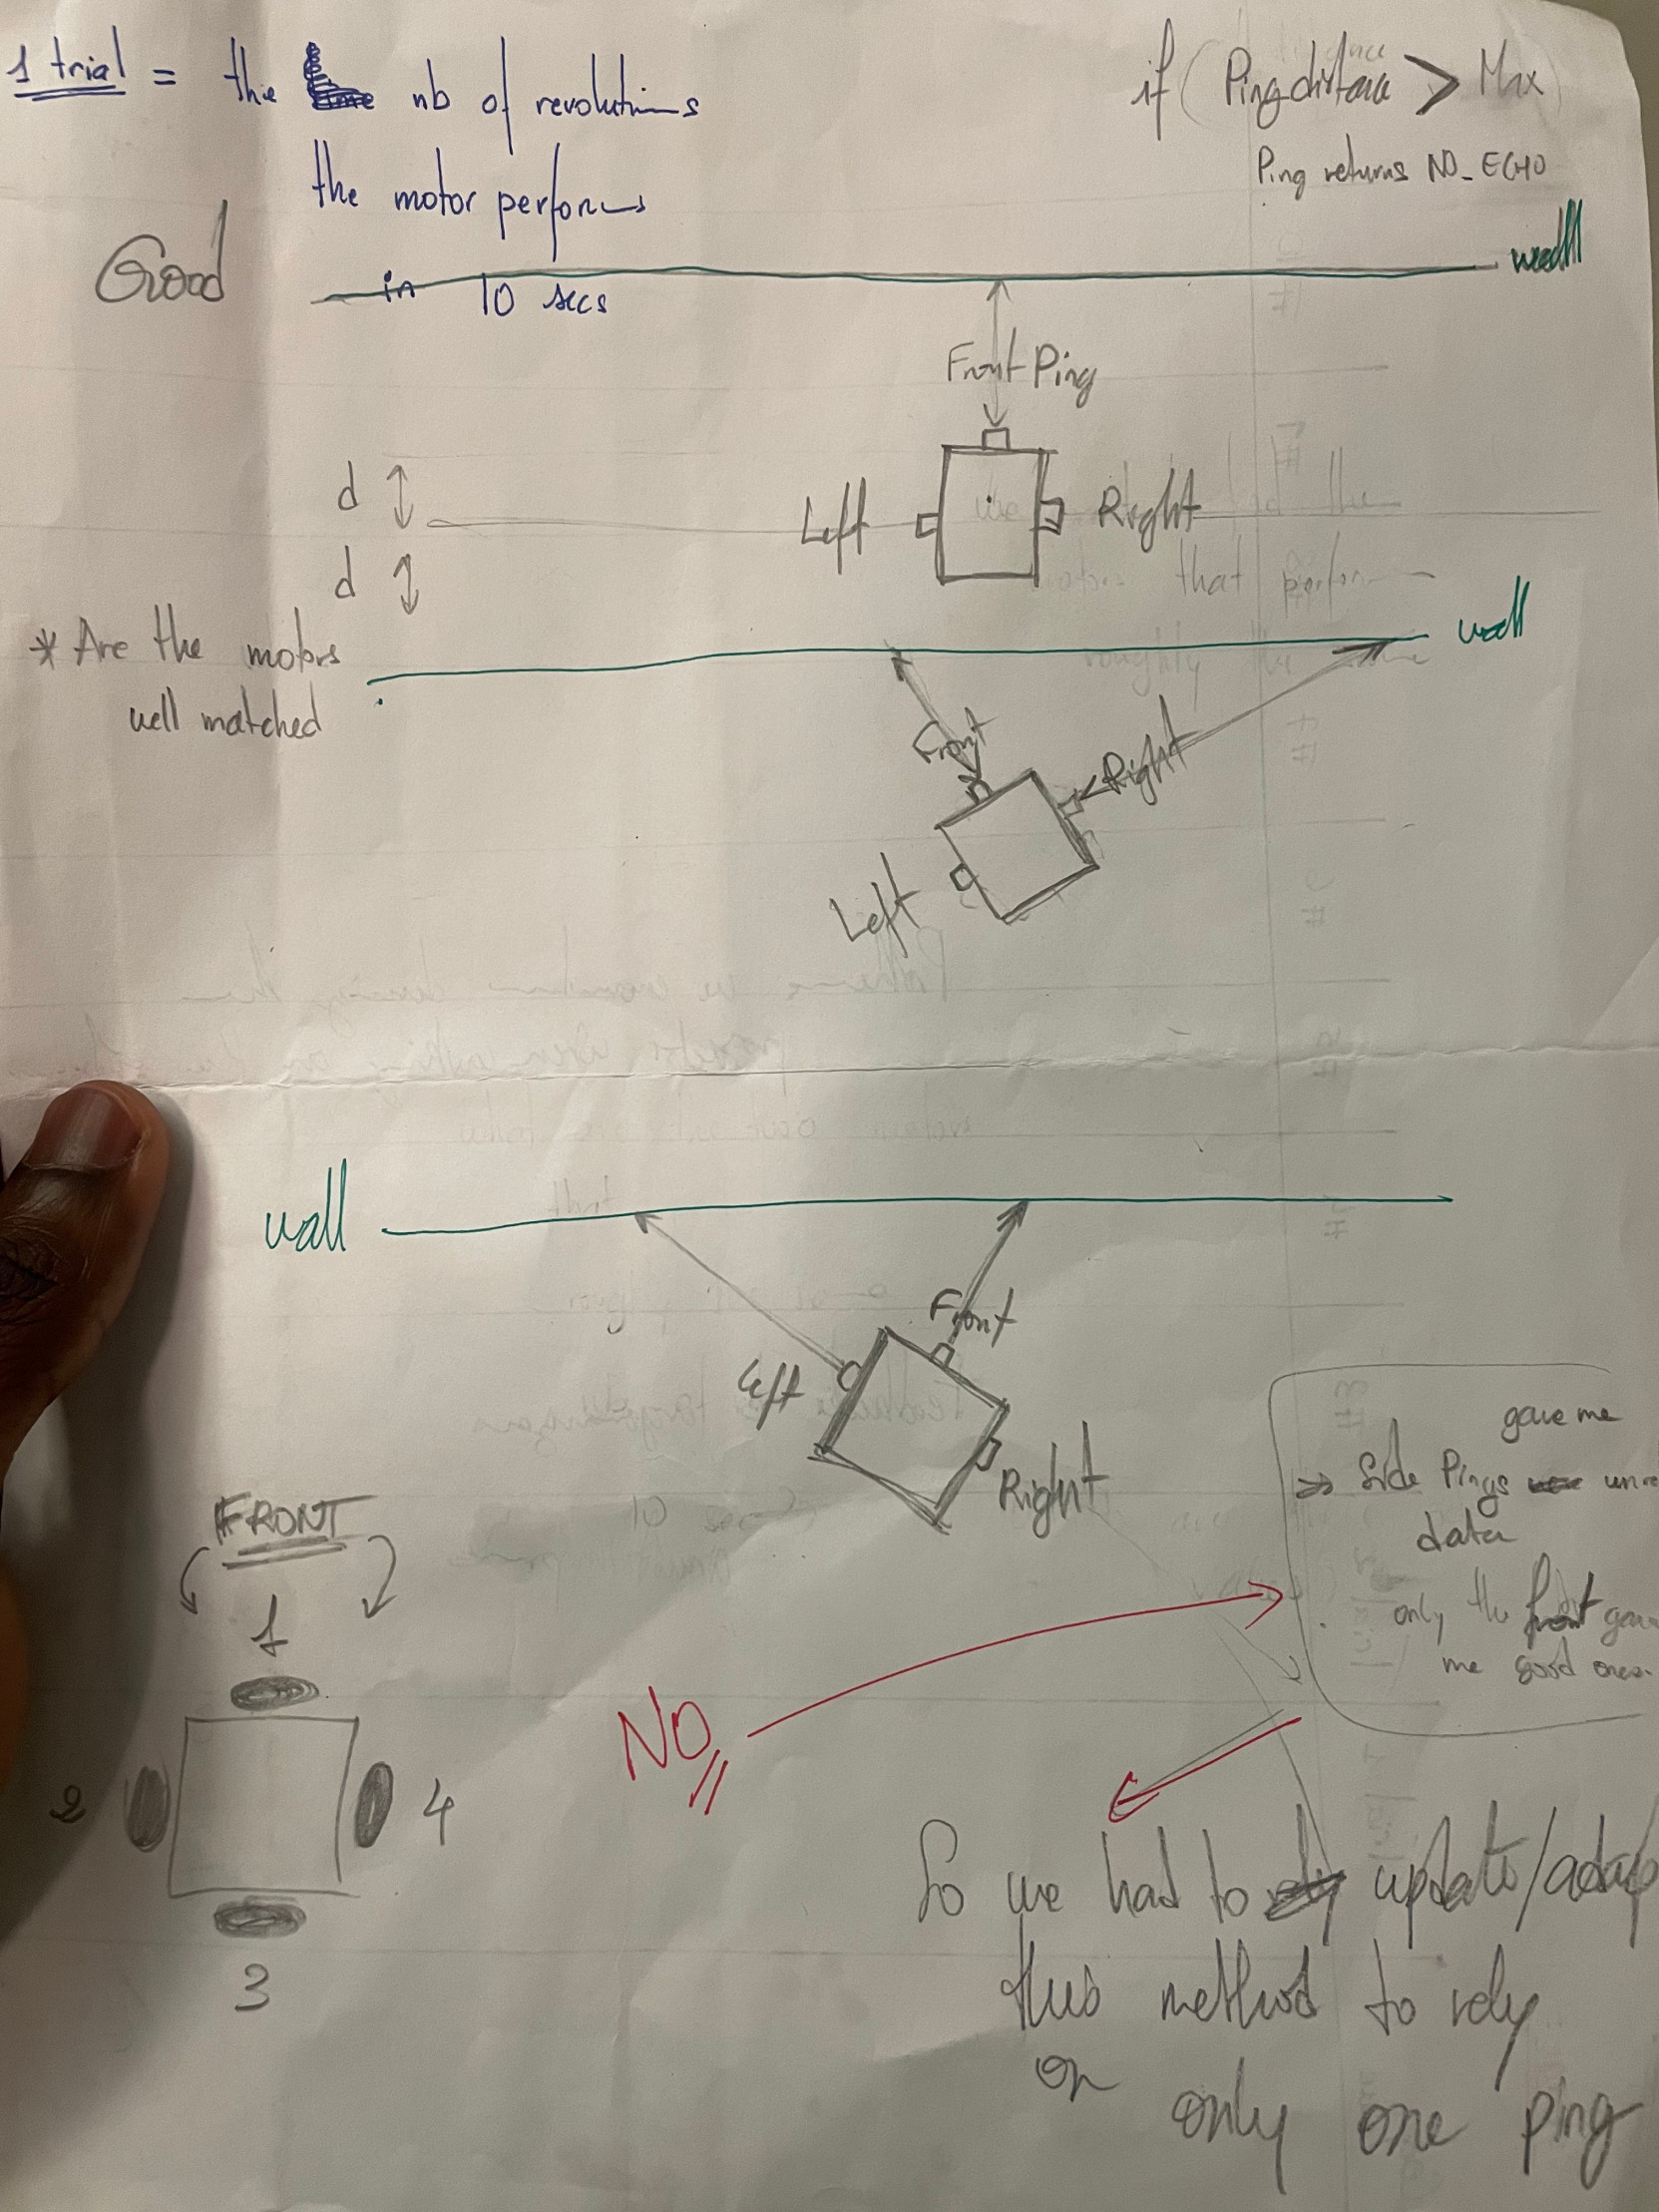 1 trial = the nb of revolutions
the motor performs
in 10 secs
if (Pingdistance > Max)
Ping returns NO_ECHO
Good
wall
Front Ping
d
Left
Right
d
* Are the motors
well matched
wall
Front
Right
Left
wall
Front
Left
Right
gave me
=> Side Pings
data
only the front
me good ones.
FRONT
1
2
4
3
NO
So we had to update/
this method to rely
on
only one ping